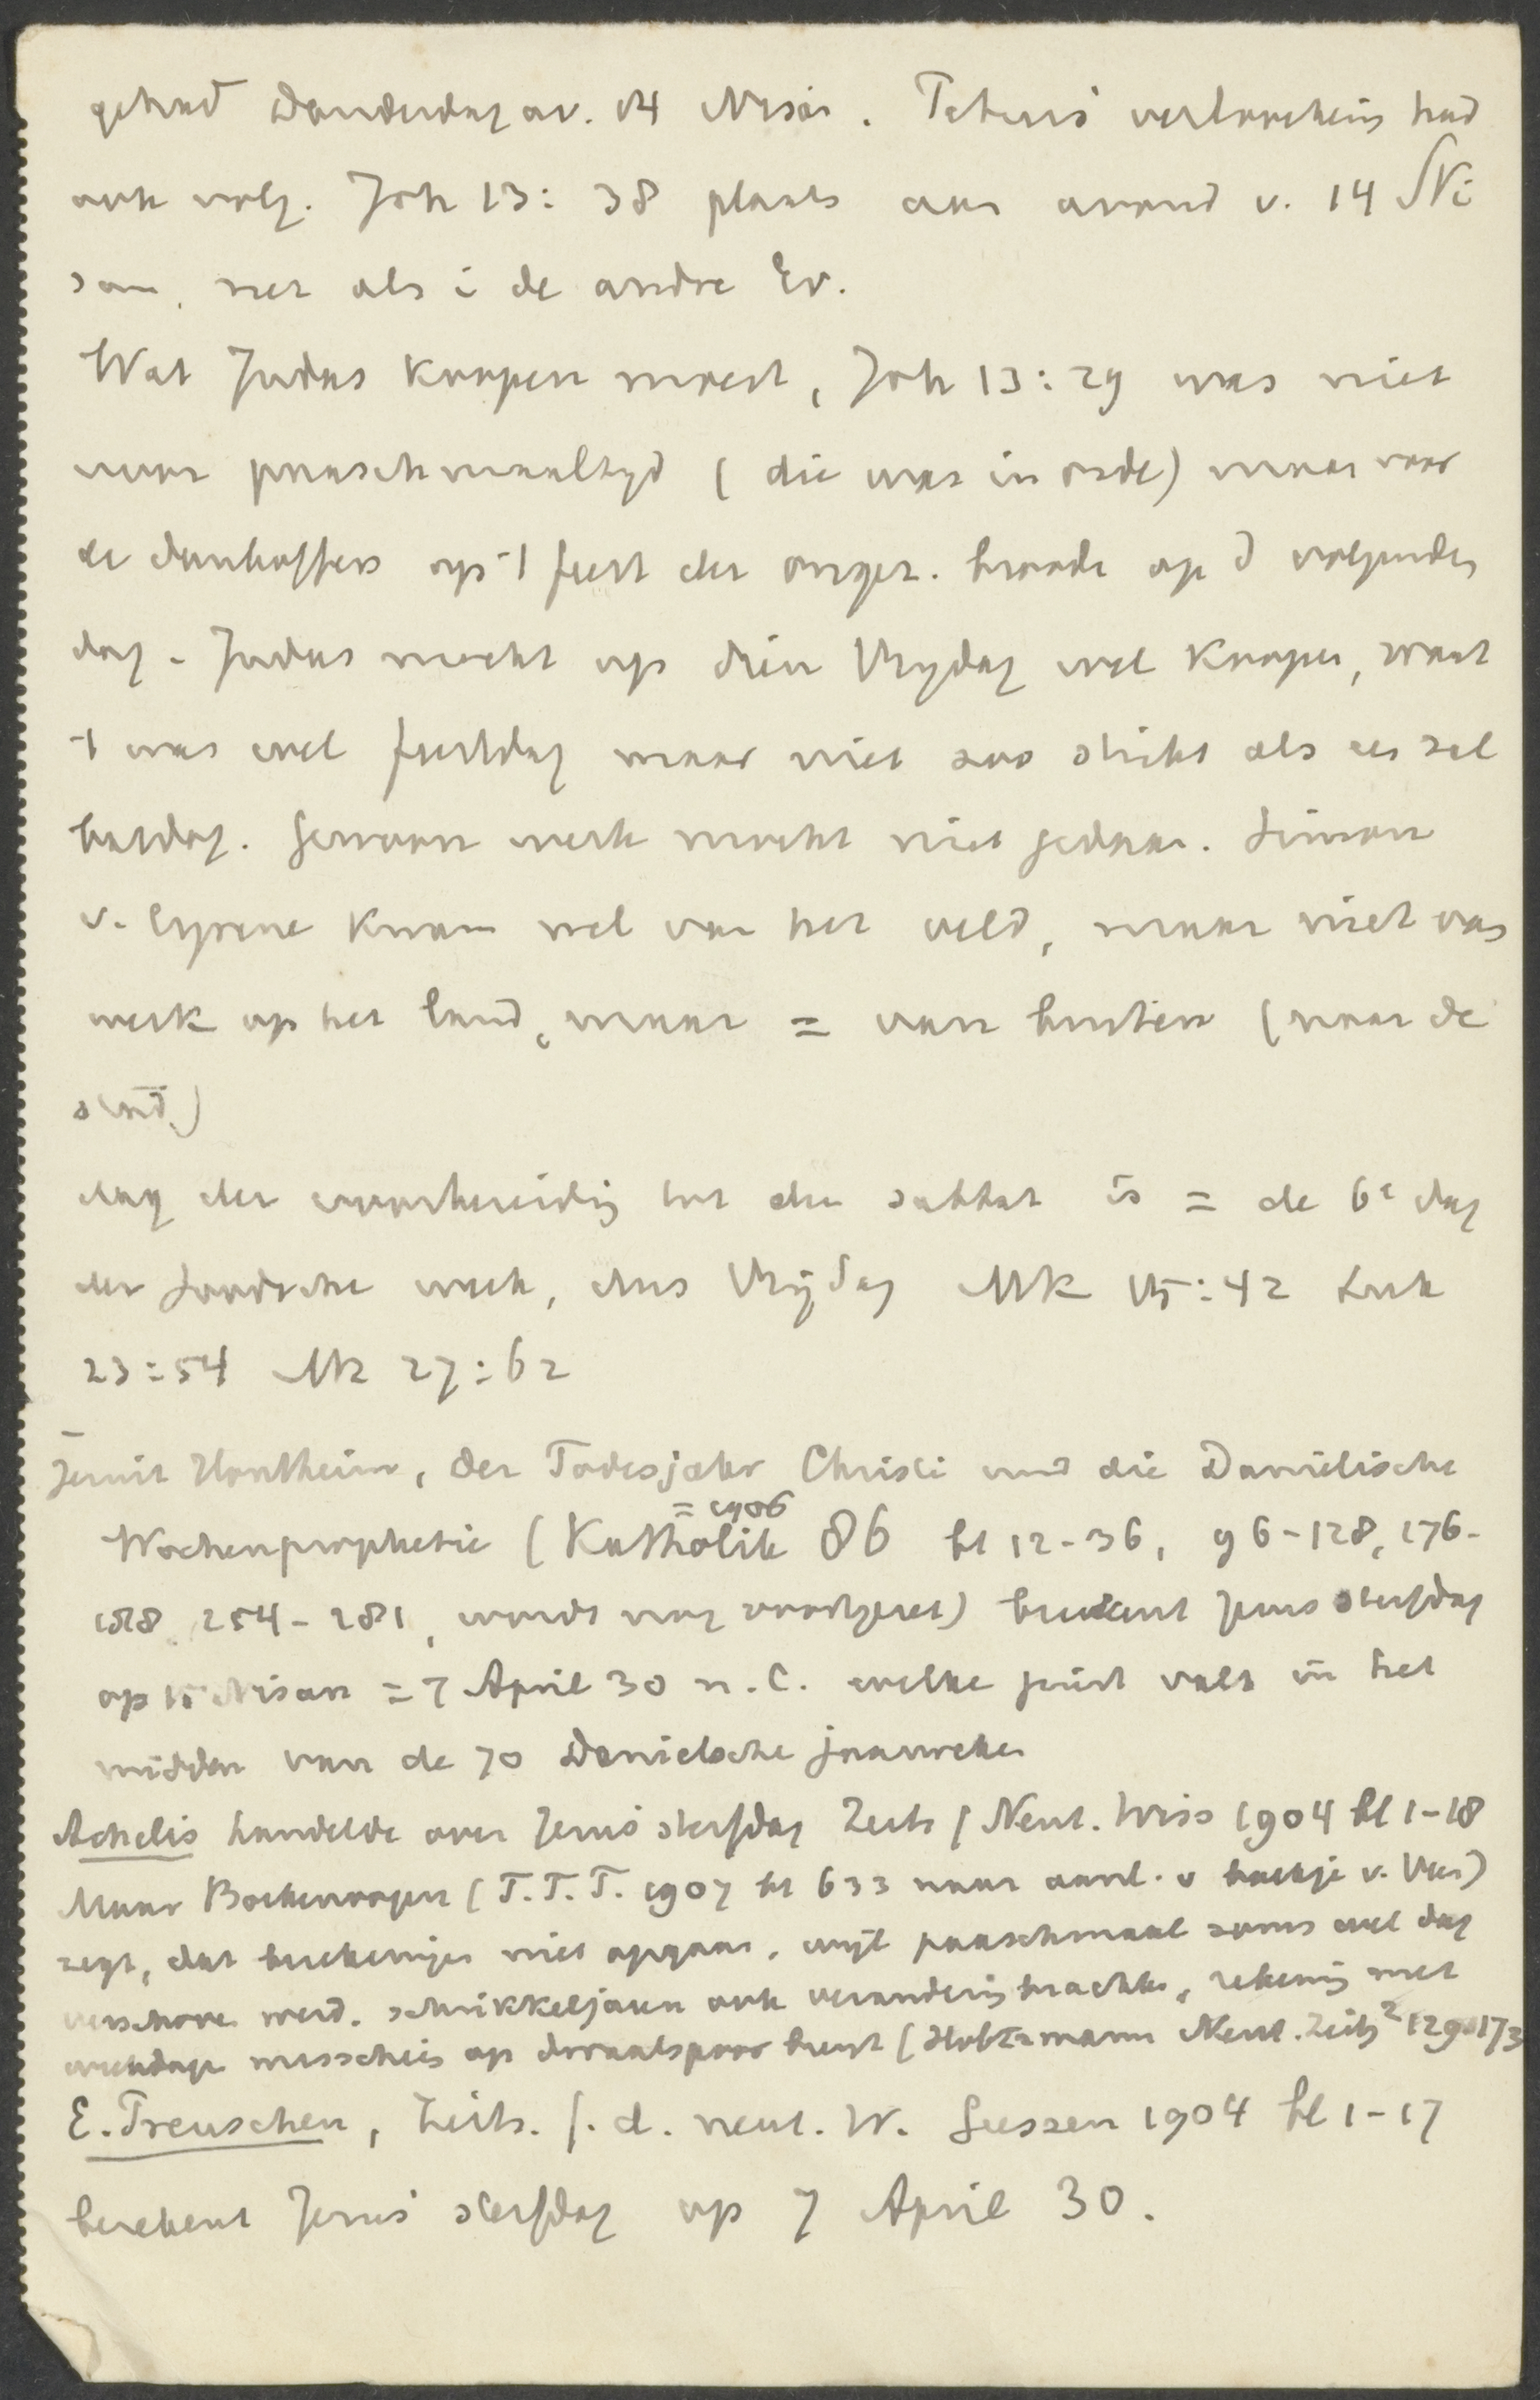 gehad Donderdag av. 14 Nisan. Petrus' verloochening had
ook volg. Joh 13: 38 plaats aan avond v. 14 Ni
san, net als i de andre Ev.
Wat Judas koopen moest, Joh 13:29 was niet
voor paaschmaaltyd (die was in orde) maar voor
de dankoffers op 't feest der ongez. broode op d volgenden
dag. Judas mocht op dien Vrydag wel koopen, want
't was wel feestdag maar niet zoo strikt als een sab
batdag. Gewoon werk mocht niet gedaan. Simon
v. Cyrene kwam wel van het veld, maar niet van
werk op het land, maar = van buiten (naar de
stad)
dag der voorbereidig tot den sabbat is = de 6e dag
der Joodsche week, dus Vrijdag Mk 15:42 Luk
23:54 Mt 27:62
Jesuit Hontheim, Der Todesjahr Christi und die Danielische
Wochenprophetie (Katholik 86 = 1906 bl 12-36, 96-128, 176-
188, 254-281, wordt nog voortgezet) berekent Jezus sterfdag
op 15 Nisan = 7 April 30 n. C. welke juist valt in het
midden van de 70 Danielsche jaarweken
Achelis handelde over Jezus' sterfdag Zeits f Neut. Wiss 1904 bl 1-18
Maar Boekenoogen (T.T.T. 1907 bl 633 naar aanl. v boekje v. Ples)
zegt, dat berekeningen niet opgaan, wijl paaschmaal soms wel dag
verschoven werd. schrikkeljaren ook verandering brachten, rekenig met
weekdage misschien op dwaalspoor brengt (Holtzmann Neut. Zeitg² 129 173
E. Preuschen, Zeits. f. d. neut. W. Giessen 1904 bl 1-17
berekent Jezus' sterfdag op 7 April 30.